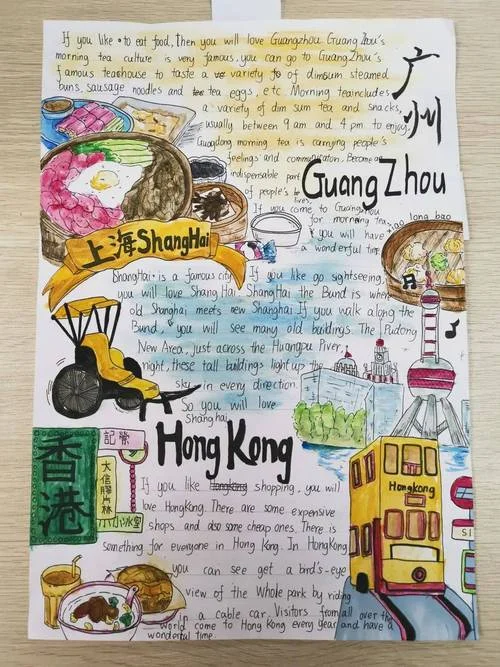 If you like to eat food, then you will love Guangzhou. GuangZhou's
morning tea culture is very famous, you can go to GuangZhou's
famous teahouse to taste a variety of dimsum steamed
buns, sausage noodles and tea eggs, etc. Morning tea includes
a variety of dim sum tea and snacks,
usually between 9 am and 4 pm to enjoy.
Guagdong morning tea is carrying people's
feelings and Become an
indispensable part
of people's lives.
广州
GuangZhou
If you come to Guangzhou
for morning tea,
you will have
a wonderful time
xiao long bao
上海ShangHai
ShangHai is a famous city If you like go sightseeing,
you will love ShangHai. ShangHai the Bund is when
old Shanghai meets new Shanghai If you walk along the
Bund, you will see many old buildings The Pudong
New Area, just across the Huangpu River,
night, these tall buildings light up the
sky in every direction.
So you will love
Shanghai
Hong Kong
香港
大信
冰室
If you like shopping, you will
love HongKong. There are some expensive
shops and also some cheap ones. There is
something for everyone in Hong Kong. In HongKong
you can see get a bird's-eye
view of the whole park by riding
a cable car. Visitors from all over the
world come to Hong Kong every year and have a
wonderful time.
Hongkong